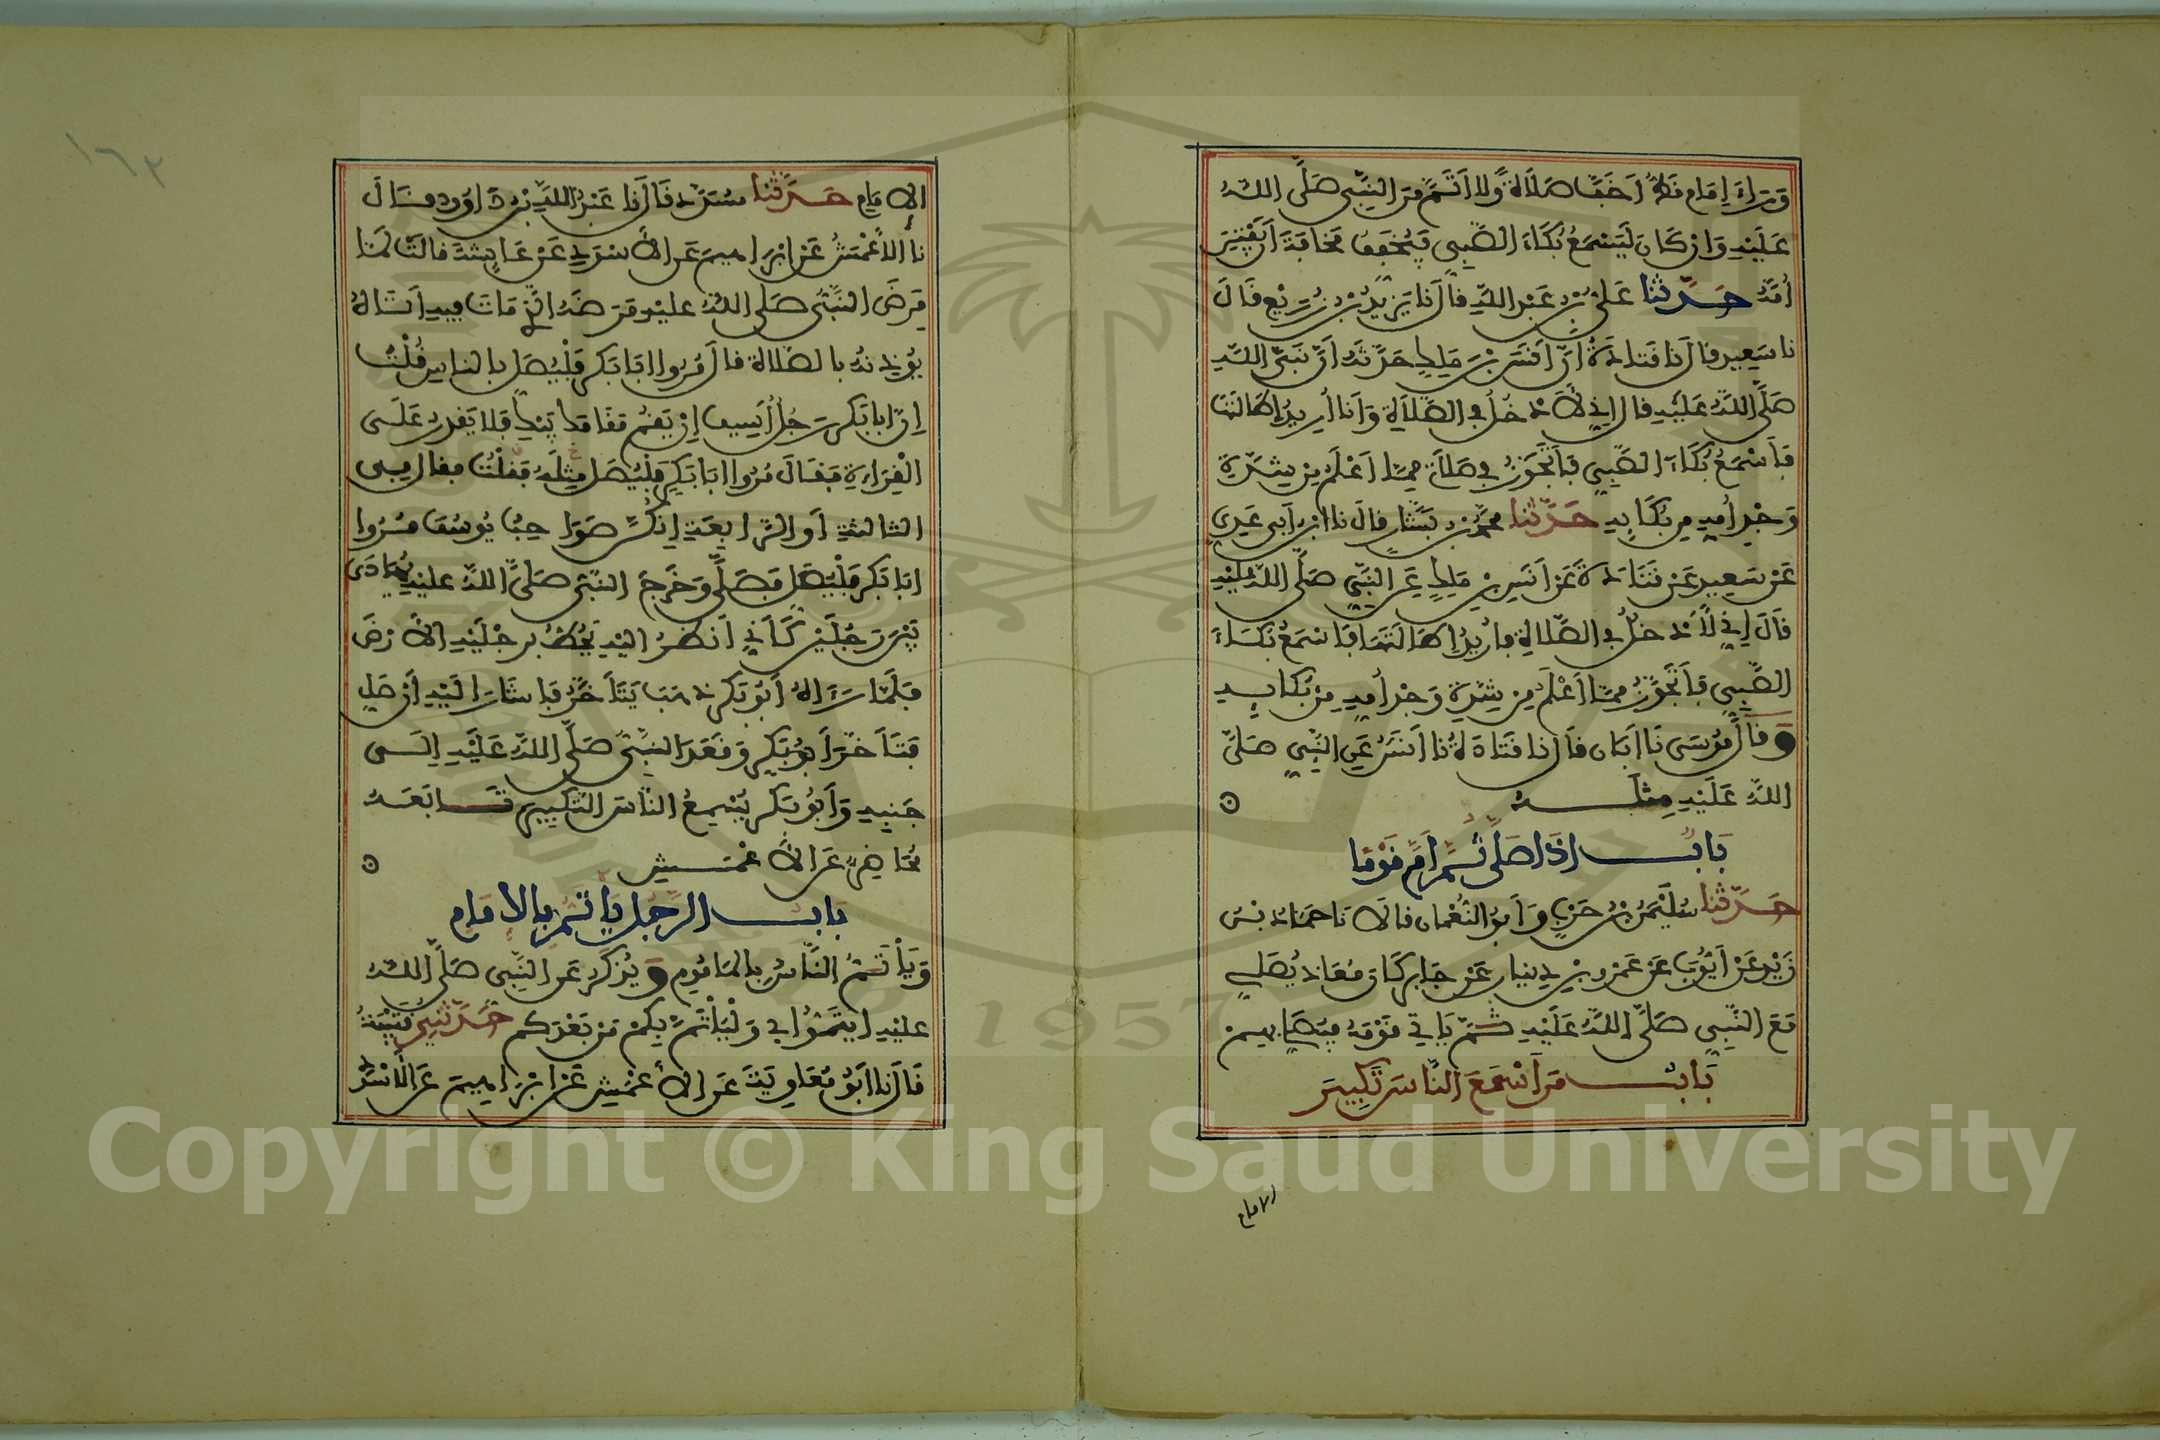 وَرَاءَ إِمَامٍ قَطُّ أَخَفَّ صَلَاةً وَلَا أَتَمَّ مِنَ النَّبِيِّ صَلَّى اللَّهُ
عَلَيْهِ وَإِنْ كَانَ لَيَسْمَعُ بُكَاءَ الصَّبِيِّ فَيُخَفِّفُ مَخَافَةَ أَنْ تُفْتَنَ
أُمُّهُ حَدَّثَنَا عَلِيُّ بْنُ عَبْدِ اللَّهِ قَالَ نَا يَزِيدُ بْنُ زُرَيْعٍ قَالَ
نا سَعِيدٌ قال نَا قَتَادَةُ أَنَّ أَنَسَ بْنَ مَلِكٍ حَدَّثَهُ أَنَّ نَبِيَّ اللَّهِ
صَلَّى اللَّهُ عَلَيْهِ قال إِنِّي لَأَدْخُلُ فِي الصَّلَاةِ وَأَنَا أُرِيدُ إِطَالَتَهَا
فَأَسْمَعُ بُكَاءَ الصَّبِيِّ فَأَتَجَوَّزُ فِي صَلَاتِي مِمَّا أَعْلَمُ مِنْ شِدَّةِ
وَجْدِ أُمِّهِ مِنْ بُكَائِهِ حَدَّثَنَا مُحَمَّدُ بْنُ بَشَّارٍ قال نَا ابْنُ أَبِي عَدِيٍّ
عَنْ سَعِيدٍ عَنْ قَتَادَةَ عَنْ أَنَسِ بْنِ مَلِكٍ عَنِ النَّبِيِّ صَلَّى اللَّهُ عَلَيْهِ
قَالَ إِنِّي لَأَدْخُلُ فِي الصَّلَاةِ فأُرِيدُ إِطَالَتَهَا فَأَسْمَعُ بُكَاءَ
الصَّبِيِّ فَأَتَجَوَّزُ مِمَّا أَعْلَمُ مِنْ شِدَّةِ وَجْدِ أُمِّهِ مِنْ بُكَائِهِ
وَقَالَ مُوسَى نَا أَبَانُ قَالَ نَا قَتَادَةُ نَا أَنَسٌ عَنِ النَّبِيِّ صَلَّى
اللَّهُ عَلَيْهِ مِثْلَهُ
بَابُ إِذَا صَلَّى ثُمَّ أَمَّ قَوْمًا
حَدَّثَنَا سُلَيْمَنُ بْنُ حَرْبٍ وَأَبُو النُّعْمَانِ قَالَا نَا حَمَّادُ بْنُ
زَيْدٍ عَنْ أَيُّوبَ عَنْ عَمْرِو بْنِ دِينَارٍ عَنْ جَابِرٍ كَانَ مُعَاذٌ يُصَلِّي
مَعَ النَّبِيِّ صَلَّى اللَّهُ عَلَيْهِ ثُمَّ يَأْتِي قَوْمَهُ فَيُصَلِّي بِهِمْ
بَابُ مَنْ أَسْمَعَ النَّاسَ تَكْبِيرَ
الامام
١٦٢
الإمام حَدَّثَنَا مُسَدَّدٌ قَالَ نَا عَبْدُ اللَّهِ بْنُ دَاوُودَ قَالَ
نا الأَعْمَشُ عَنْ إِبْرَاهِيمَ عَنِ الأَسْوَدِ عَنْ عَائِشَةَ قالت لَمَّا
مَرِضَ النَّبِيُّ صَلَّى اللَّهُ عليه مَرَضَهُ الَّذِي مَاتَ فِيهِ أَتَاهُ
يُؤْذِنُهُ بِالصَّلَاةِ قال مُرُوا أَبَا بَكْرٍ فَلْيُصَلِّ بِالنَّاسِ قُلْتُ
إِنَّ أَبَا بَكْرٍ رَجُلٌ أَسِيفٌ إِنْ يَقُمْ مَقَامَكَ يَبْكِ فَلَا يَقْدِرُ عَلَى
الْقِرَاءَةِ فَقَالَ مُرُوا أَبَا بَكْرٍ فَلْيُصَلِّ مِثْلَهُ فَقُلْتُ فقال فِي
الثَّالِثَةِ أَوِ الرَّابِعَةِ إِنَّكُنَّ صَوَاحِبُ يُوسُفَ مُرُوا
أَبَا بَكْرٍ فَلْيُصَلِّ فَصَلَّى وَخَرَجَ النَّبِيُّ صَلَّى اللَّهُ عليه يُهَادَى
بَيْنَ رَجُلَيْنِ كَأَنِّي أَنْظُرُ إِلَيْهِ يَخُطُّ بِرِجْلَيْهِ الأَرْضَ
فَلَمَّا رَءَاهُ أَبُو بَكْرٍ ذَهَبَ يَتَأَخَّرُ فَأَشَارَ إِلَيْهِ أَنْ صَلِّ
فَتَأَخَّرَ أَبُو بَكْرٍ وَقَعَدَ النَّبِيُّ صَلَّى اللَّهُ عَلَيْهِ إِلَى
جَنْبِهِ وَأَبُو بَكْرٍ يُسْمِعُ النَّاسَ التَّكْبِيرَ تَابَعَهُ
مُحَاضِرٌ عَنِ الأَعْمَشِ
بَابُ الرَّجُلُ يَأْتَمُّ بِالإِمَامِ
وَيَأْتَمُّ النَّاسُ بِالمَامُومِ وَيُذْكَرُ عَنِ النَّبِيِّ صَلَّى اللَّهُ
عليه ايتَمُّوا بِي وَلْيَأْتَمَّ بِكُمْ مَنْ بَعْدَكُم حَدَّثَنِي قُتَيْبَةُ
قَالَ نَا أَبُو مُعَاوِيَةَ عَنِ الأَعْمَشِ عَنْ إِبْرَاهِيمَ عَنِ الأَسْوَدِ
Copyright © King Saud University
1957